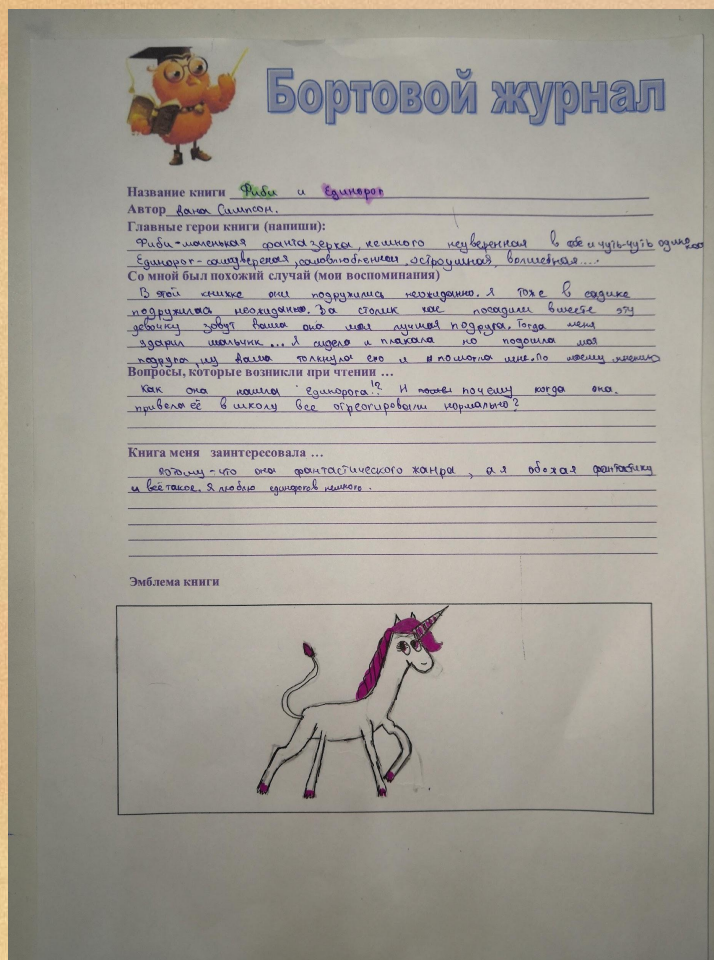 Бортовой журнал
Название книги Фиби и Единорог
Автор Дана Симпсон.
Главные герои книги (напиши):
Фиби-маленькая фантазёрка, немного неуверенная в себе и чуть-чуть одинокая
Единорог-самоуверенная, самовлюбленная, остроумная, волшебная....
Со мной был похожий случай (мои воспоминания)
В этой книжке они подружились неожиданно. Я тоже в садике
подружилась неожиданно. За столик нас посадили вместе эту
девочку зовут Даша она моя лучшая подруга. Тогда меня
ударил мальчик ... Я сидела и плакала но подошла моя
подруга, ну Даша толкнула его и помогла мне. По моему мнению
Вопросы, которые возникли при чтении ...
Как она нашла Единорога!? И почему когда она
привела её в школу все отреогировали нормально?
Книга меня заинтересовала ...
Потому-что она фантастического жанра, а я обожаю фантастику
и всё такое. Я люблю единорогов немного.
Эмблема книги